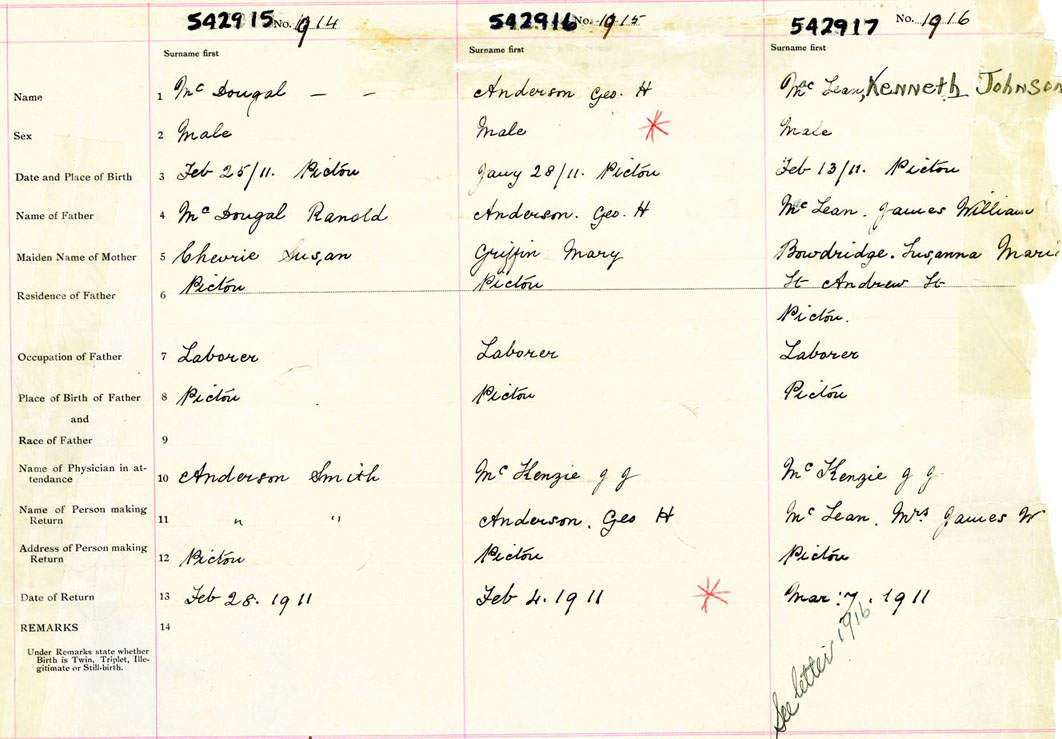 542915 No. 1914 542916 No. 1915 542917 No. 1916
Surname first Surname first Surname first
Name 1 Mc Dougal — — Anderson Geo. H Mc Lean, Kenneth Johnson
Sex 2 Male Male Male
Date and Place of Birth 3 Feb 25/11. Pictou Jany 28/11. Pictou Feb 13/11. Pictou
Name of Father 4 Mc Dougal Ranold Anderson. Geo. H Mc Lean. James William
Maiden Name of Mother 5 Chevrie Susan Griffin Mary Bowdridge. Susanna Marie
Residence of Father 6 Pictou Pictou St Andrew St
Pictou.
Occupation of Father 7 Laborer Laborer Laborer
Place of Birth of Father 8 Pictou Pictou Pictou
and
Race of Father 9
Name of Physician in at-
tendance 10 Anderson Smith Mc Kenzie J J Mc Kenzie J J
Name of Person making
Return 11 " " Anderson, Geo H Mc Lean. Mrs James W
Address of Person making
Return 12 Pictou Pictou Pictou
Date of Return 13 Feb 28. 1911 Feb 4. 1911 Mar: 7. 1911
REMARKS 14
Under Remarks state whether
Birth is Twin, Triplet, Ille-
gitimate or Still-birth.
See letter 1916